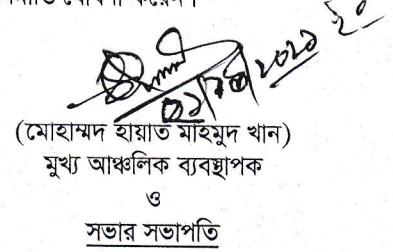 ঘোষণা করেন।
(মোহাম্মদ হায়াত মাহমুদ খান)
মুখ্য আঞ্চলিক ব্যবস্থাপক
ও
সভার সভাপতি